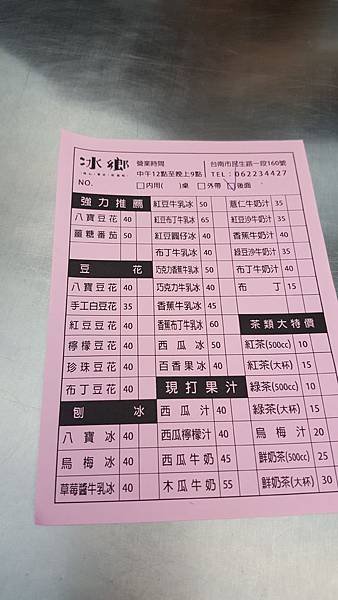 冰鄉
營業時間
中午12點至晚上9點
台南市民生路一段160號
TEL:062234427
NO.
□內用( )桌 □外帶 □後面
強力推薦
八寶豆花 40
薑糖番茄 50
豆花
八寶豆花 40
手工白豆花 35
紅豆豆花 40
檸檬豆花 40
珍珠豆花 40
布丁豆花 40
刨冰
八寶冰 40
烏梅冰 40
草莓醬牛乳冰 40
紅豆牛乳冰 50
紅豆布丁牛乳冰 65
紅豆圓仔冰 40
布丁牛乳冰 40
巧克力香蕉牛乳冰 50
巧克力牛乳冰 40
香蕉牛乳冰 45
香蕉布丁牛乳冰 60
西瓜冰 50
百香果冰 40
現打果汁
西瓜汁 40
西瓜檸檬汁 40
西瓜牛奶 45
木瓜牛奶 55
薏仁牛奶汁 35
紅豆沙牛奶汁 35
香蕉牛奶汁 40
綠豆沙牛奶汁 35
布丁牛奶汁 40
布丁 15
茶類大特價
紅茶(500cc) 10
紅茶(大杯) 15
綠茶(500cc) 10
綠茶(大杯) 15
烏梅汁 20
鮮奶茶(500cc) 25
鮮奶茶(大杯) 30